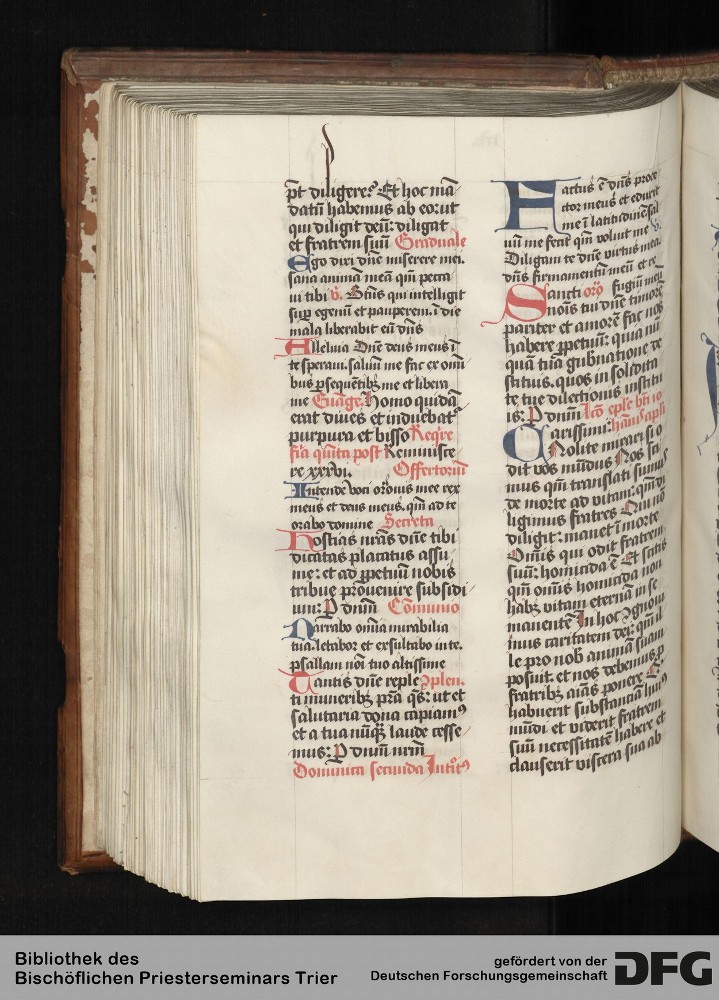 pt̄ diligere? Et hoc mā
datū habemus ab eo: ut
qui diligit deū: diligat
et fratrem suū Graduale
Ego dixi dn̄e miserere mei.
sana animā meā qm̄ pecca
ui tibi v̄. Bt̄us qui intelligit
sup̱ egenū et pauperem. ī die
mala liberabit eū dn̄s
Alleluia Dn̄e deus meus ī
te speraui. saluū me fac ex omī
bus ꝑsequētibꝫ me et libera
me Euāge. Homo quidā
erat diues et induebatᷣ
purpura et bisso Req̄re
fr̄ia quīta post Reminisce
re xxxvi. Offertoriū
Intende voci or̄onis mee rex
meus et deus meus. qm̄ ad te
orabo domine Secreta
Hostias nr̄as dn̄e tibi
dicatas placatus assu
me: et ad ꝑpetuū nobis
tribue prouenire subsidi
um: P dnūm Cōmunio
Narrabo om̄ia mirabilia
tua. letabor et exsultabo in te.
psallam nōi tuo altissime
Tantis dn̄e reple Ꝯplen.
ti muneribꝫ pr̄a qs̄: ut et
salutaria dona capiamꝰ
et a tua nūqꝫ laude cesse
mus: P dnūm nrm̄
Dominica secunda Introitꝰ
Factus ē dn̄s prote
ctor meus et eduxit
me ī latitudinē sal
uū me fecit qm̄ voluit me v̄.
Diligam te dn̄e virtus mea.
dn̄s firmamentū meū et re
Sancti or̄o fugiū meū
nōis tui dn̄e timorē
pariter et amorē fac nos
habere ꝑpetuū: quia nū
quā tua gub̄natione de
stituis. quos in solidita
te tue dilectionis institu
is: P dnūm Lc̄o ep̄le bt̄i io
Carissimi: hānis apl̄i
Nolite mirari si o
dit vos mūdus Nos sci
mus qm̄ translati sumus
de morte ad vitam: qm̄ di
ligimus fratres Qui nō
diligit: manet ī morte
Omīs qui odit fratrem
suū: homicida ē Et scitis
qm̄ om̄is homicida non
habꝫ vitam eternā in se
manentē In hoc ꝯgnoui
mus caritatem dei: qm̄ il
le pro nob̄ animā suam
posuit. et nos debemus ꝓ
fratribꝫ aīas ponere Q̄
habuerit substanciā huiꝰ
mūdi et viderit fratrem
suū necessitatē habere et
clauserit viscera sua ab
Bibliothek des
Bischöflichen Priesterseminars Trier
gefördert von der
Deutschen Forschungsgemeinschaft
DFG